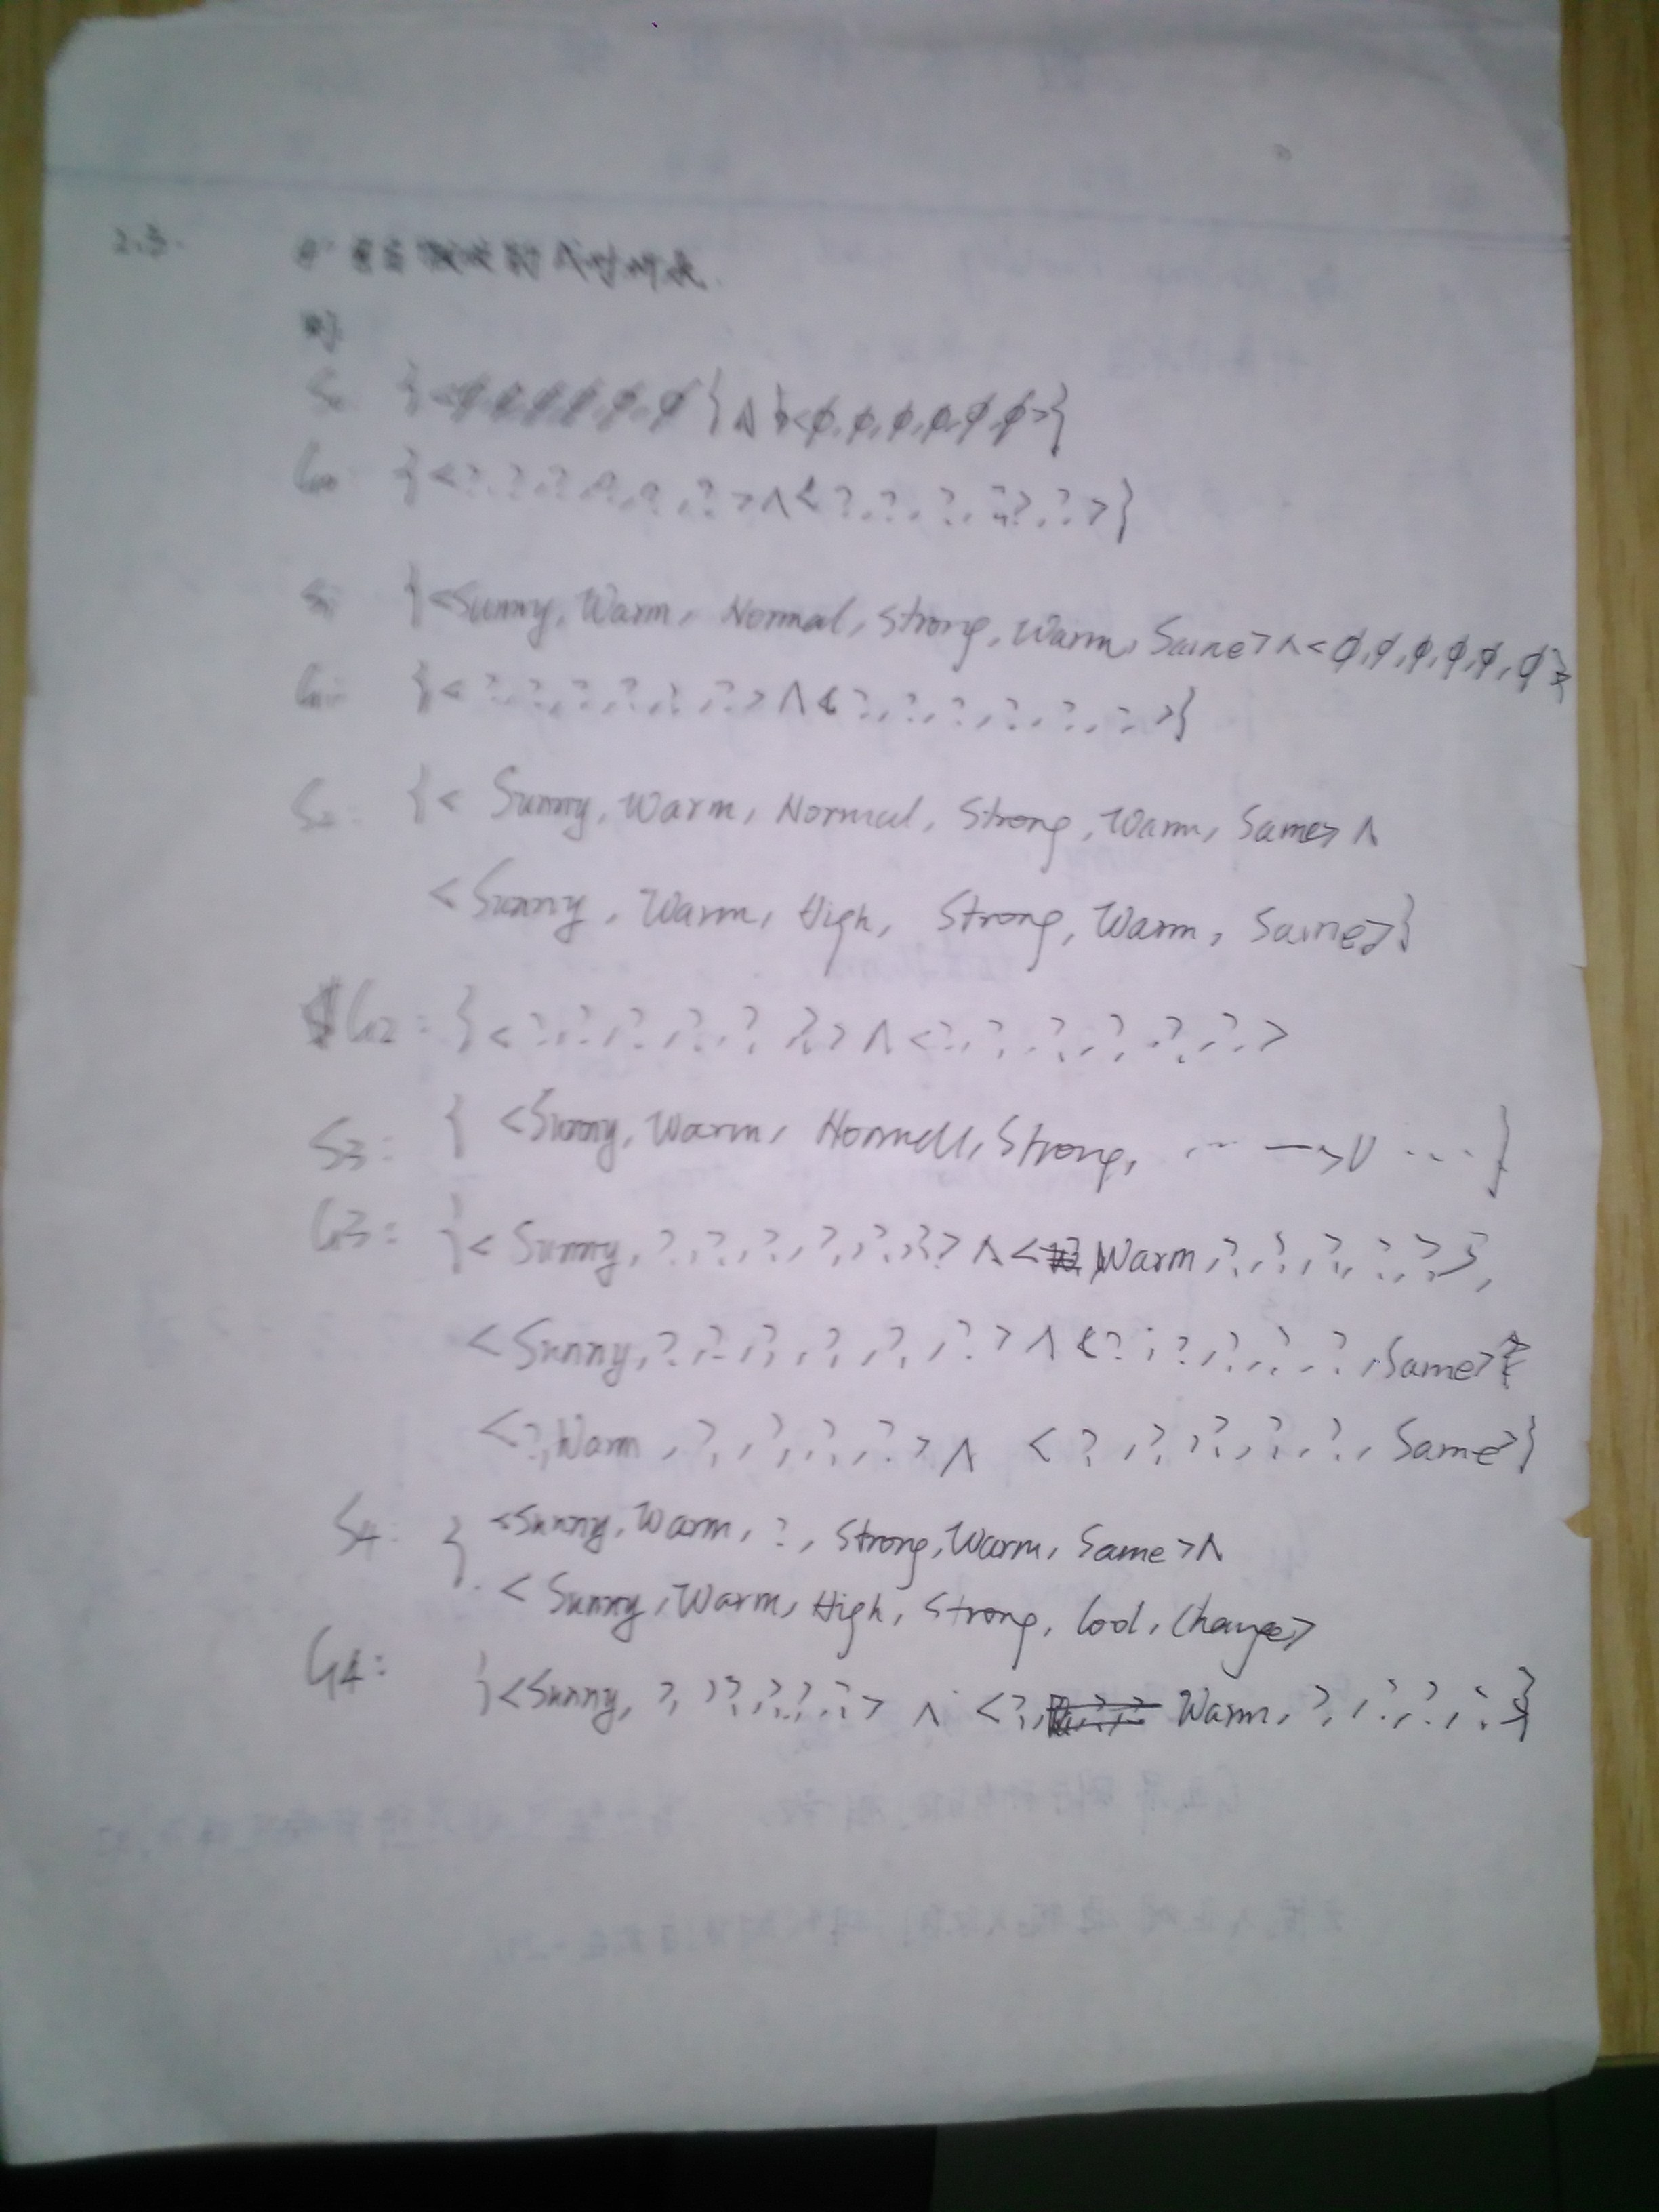 2.3.
S0 {<φ,φ,φ,φ,φ,φ} ∧ {<φ,φ,φ,φ,φ,φ>}
G0 {<?,?,?,?,?,?> ∧ <?,?,?,?,?,?>}
S1 {<Sunny, Warm, Normal, Strong, Warm, Same> ∧ <φ,φ,φ,φ,φ,φ>}
G1: {<?,?,?,?,?,?> ∧ <?,?,?,?,?,?>}
S2: {< Sunny, Warm, Normal, Strong, Warm, Same> ∧
<Sunny, Warm, High, Strong, Warm, Same>}
G2: {<?,?,?,?,?,?> ∧ <?,?,?,?,?,?>
S3: { <Sunny, Warm, Normal, Strong, ... —>V ...}
G3: {< Sunny,?,?,?,?,?,?> ∧ < Warm,?,?,?,?,?>,
<Sunny,?,?,?,?,?,?> ∧ <?,?,?,?,?,Same>
<?,Warm,?,?,?,?> ∧ <?,?,?,?,?,Same>}
S4: { <Sunny, Warm, ?, Strong, Warm, Same> ∧
< Sunny, Warm, High, Strong, Cool, Change>
G4: {<Sunny,?,?,?,?,?> ∧ <?, Warm,?,?,?,?}